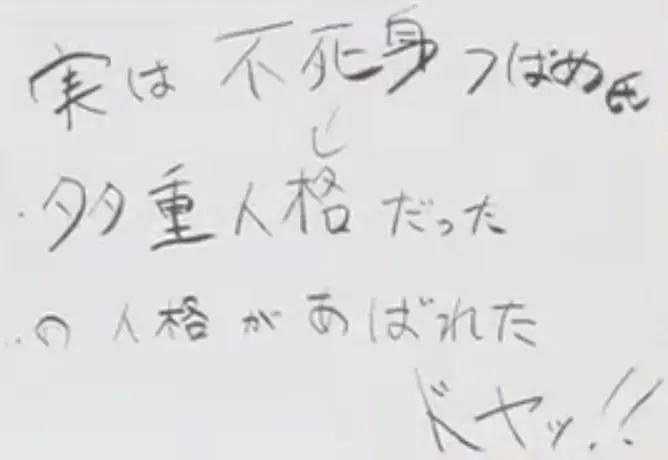 実は不死身つばめ氏
し
・多重人格だった
の人格があばれた
ドヤッ!!